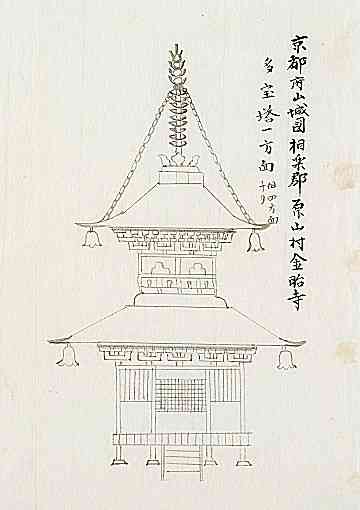 京都府山城国相楽郡原山村金胎寺
多宝塔一方面
四方面